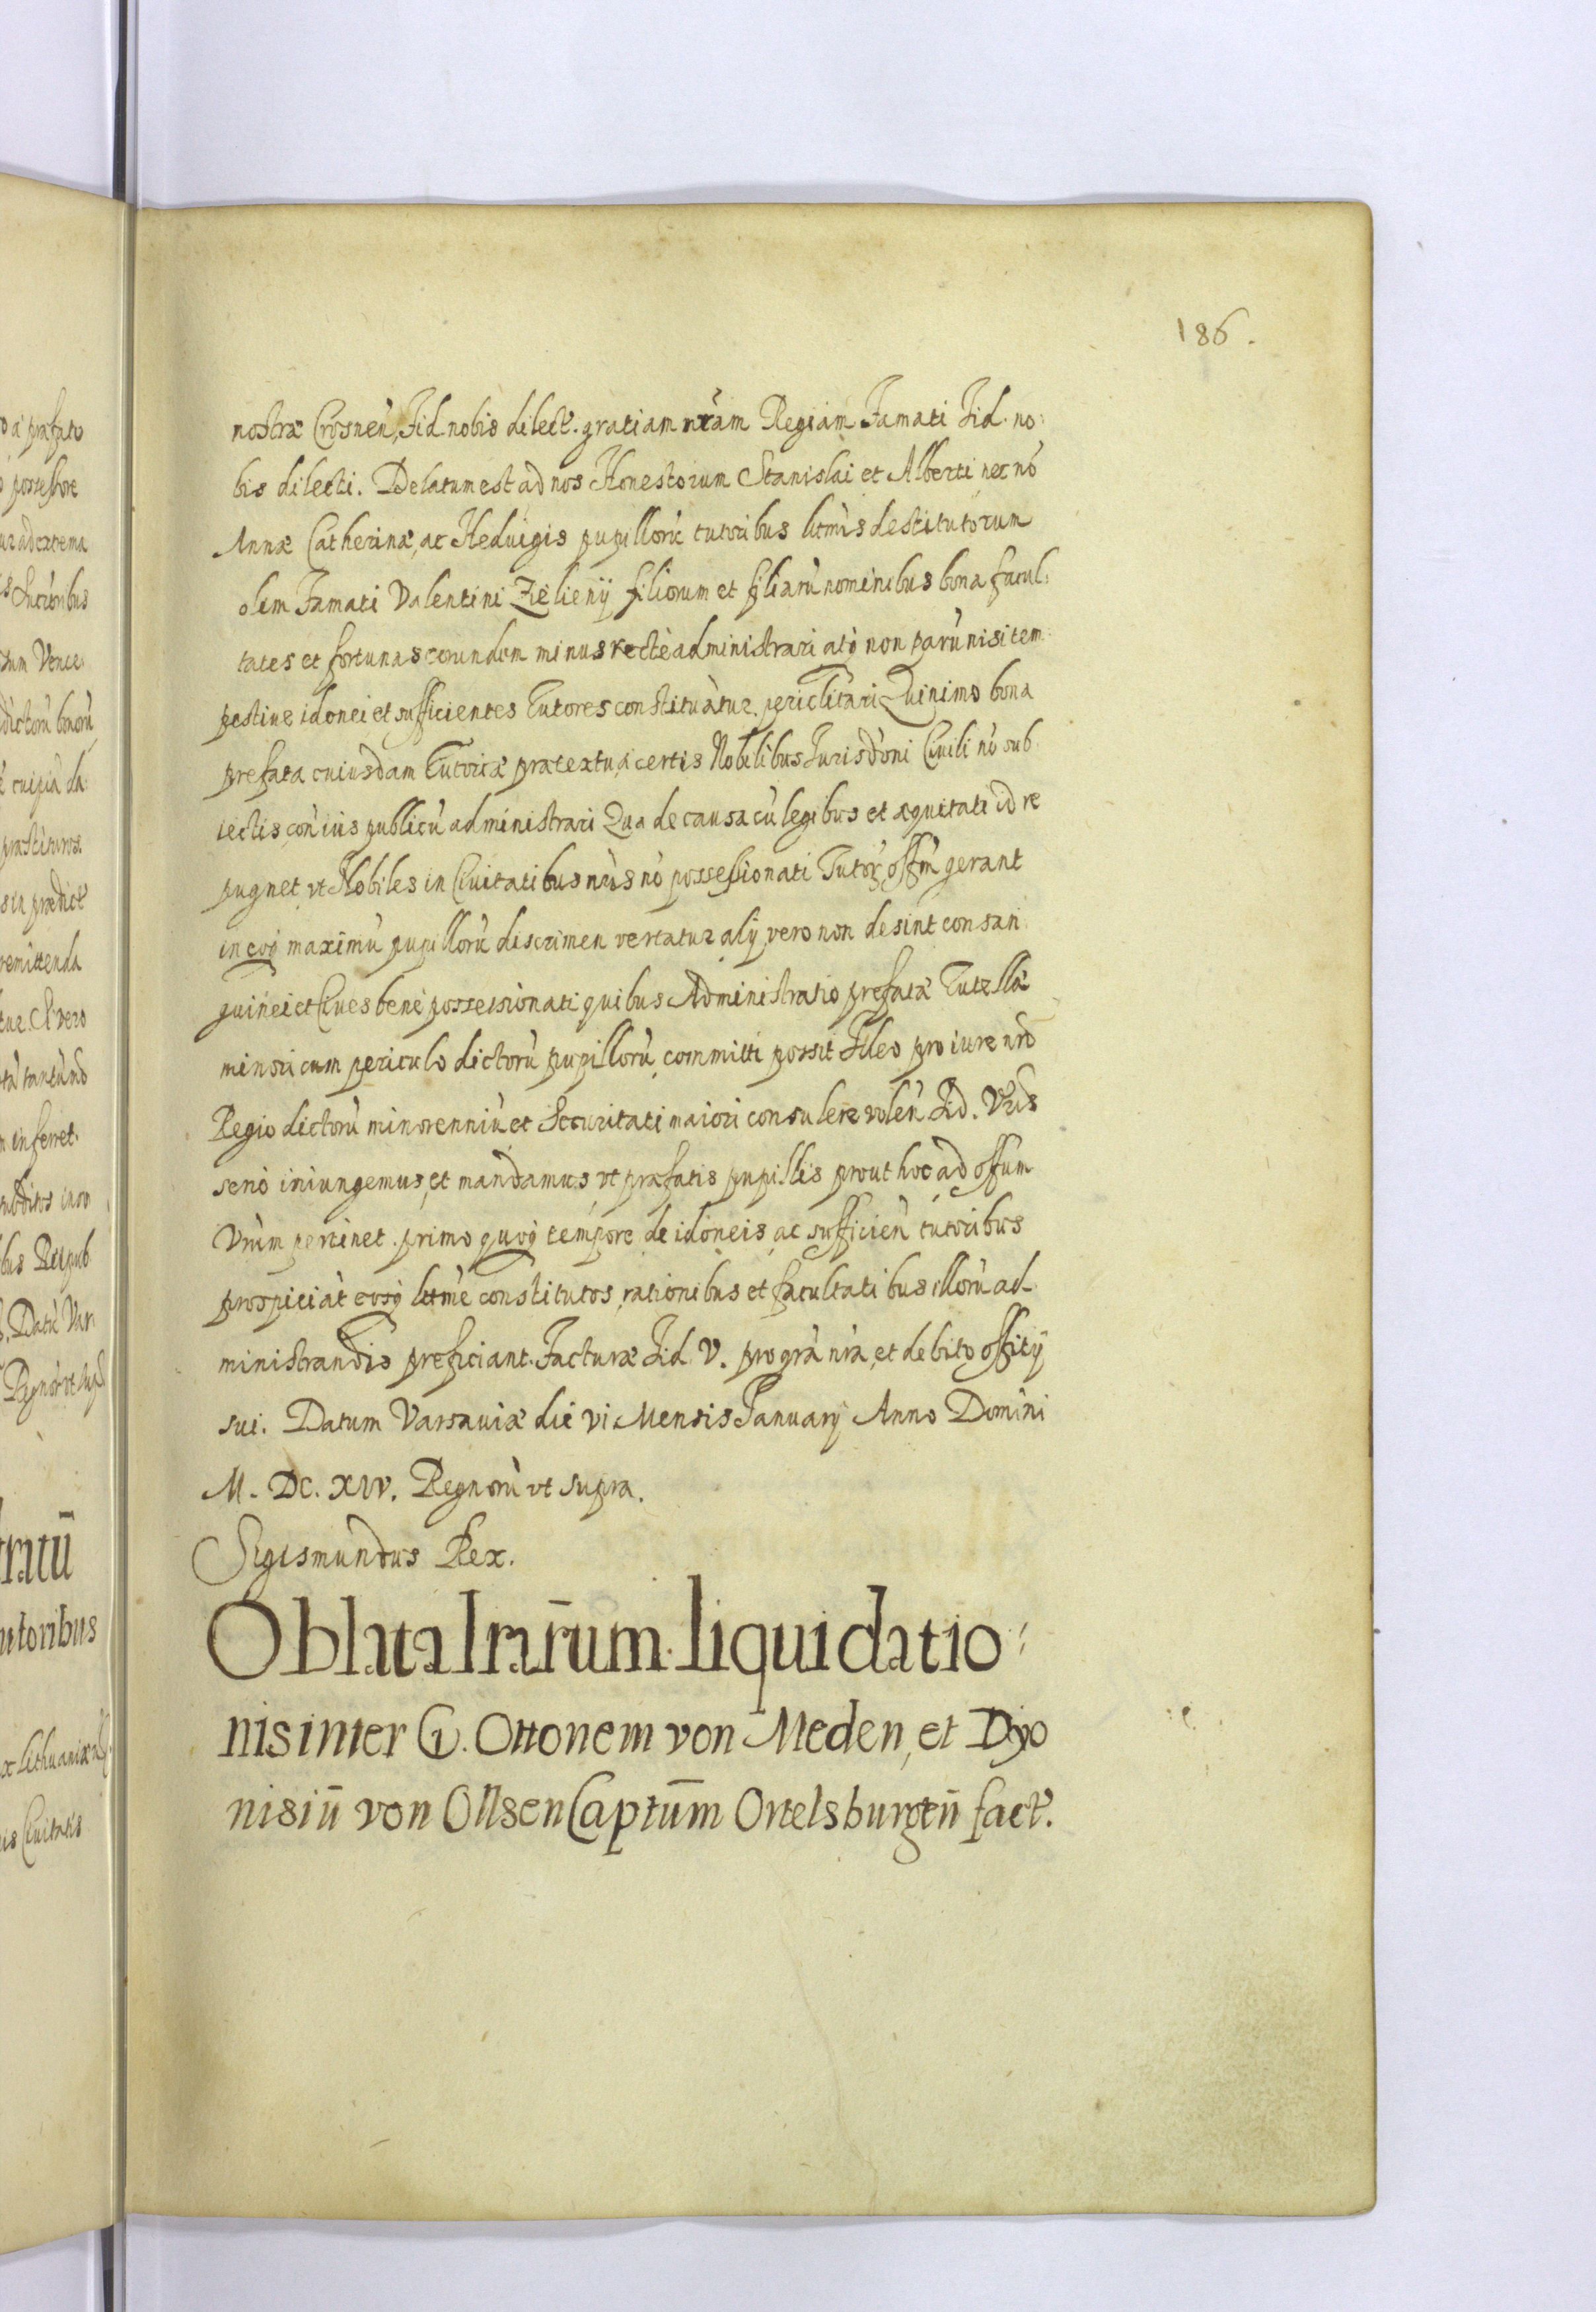 186.
nostræ Crosneñ, Fid. nobis dilect. gratiam nr̃am Regiam Famati Fid. no:
bis dilecti. Delatum est ad nos Honestorum Stanislai et Alberti, nec nõ
Annæ Catherinæ, ac Heduigis pupillorũ tutoribus ltm̃is destitutorum
olim Famati Valentini Zielieny filiorum et filiarũ nominibus bona facul:
tates et fortunas eorundem minus rectè administrari atq̃ non parũ nisi tem
pestiue idonei et sufficientes Tutores constituãtur, periclitari Quinimo bona
prefata cuiusdam Tutoriæ prætextu, á certis Nobilibus Jurisdõni Ciuili nõ sub
iectis, coñ ius publicũ administrari Qua de causa cũ legibus et æquitati id re
pugnet, vt Nobiles in Ciuitatibus nr̃is nõ possessionati Tutor̃ offm̃ gerant
in eoq̃ maximũ pupillorũ discrimen vertatur, alÿ vero non desint consan
guinei et Ciues bene possessionati quibus Administratio prefatæ Tutellæ
minori cum periculo dictorũ pupillorũ committi possit Ideo pro iure nr̃o
Regio dictorũ minorenniũ et Securitati maiori consulere voleñ Fid. Vr̃is
serio iniungemus, et mandamus vt præfatis pupillis prout hoc ad offum
Vr̃um pertinet primo quoq̃ tempore de idoneis, ac sufficieñ tutoribus
prospiciãt eosq̃ ltm̃e constitutos, rationibus et facultatibus illorũ ad
ministrandis preficiant. Facturæ Fid. V. pro gr̃a nr̃a, et debito offitÿ
sui. Datum Varsauiæ die vi Mensis Januarÿ Anno Domini
M. DC. XIV. Regnorũ vt supra.
Sigismundus Rex.
Oblata lrar̃um liquidatio:
nis inter G. Ottonem von Meden, et Dyo
nisiũ von Ollsen Captũm Ortelsburgeñ fact.